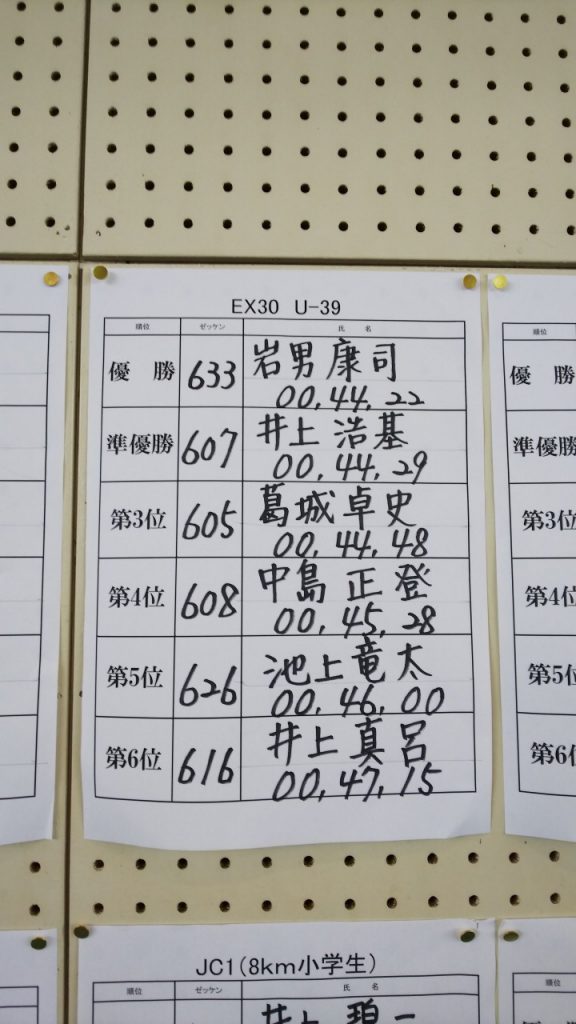 EX30 U-39
順位 ゼッケン 氏名
優勝 633 岩男康司
00,44,22
準優勝 607 井上浩基
00,44,29
第3位 605 葛城卓史
00,44,48
第4位 608 中島正登
00,45,28
第5位 626 池上竜太
00,46,00
第6位 616 井上真呂
00,47,15
順位
優勝
準優勝
第3位
第4位
第5位
第6位
JC1(8km小学生)
順位 ゼッケン 氏名
井上碧一
順位